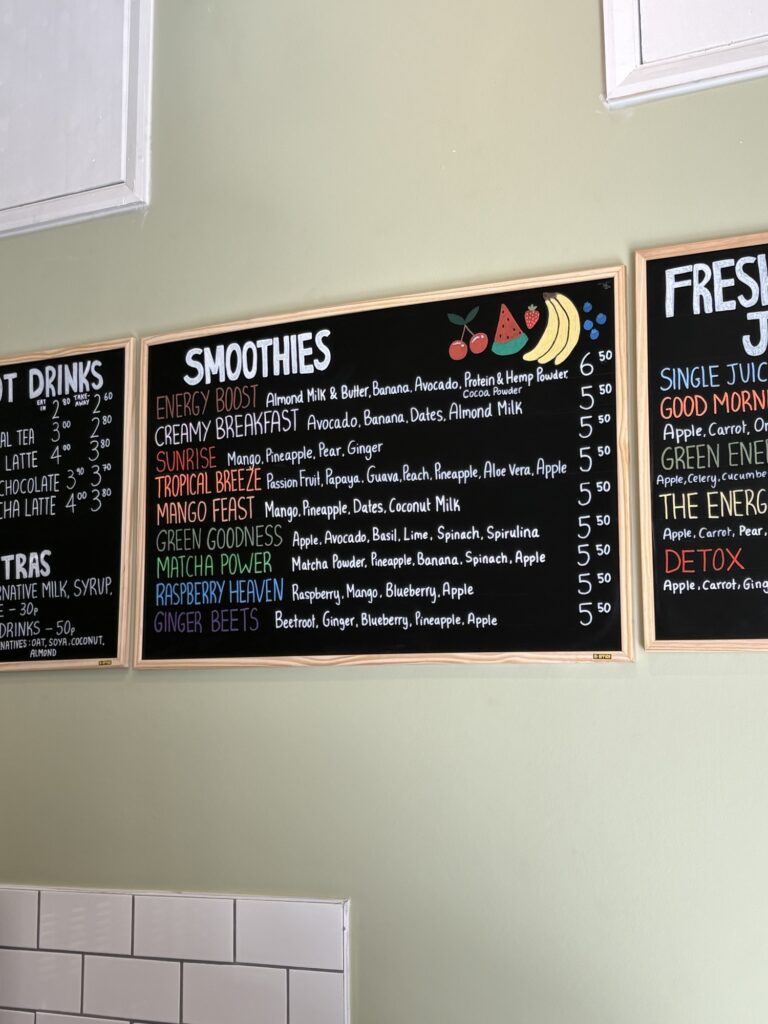 OT DRINKS
EAT IN TAKE-AWAY
2 80 2 60
AL TEA 3 00 2 80
LATTE 4 00 3 80
CHOCOLATE 3 90 3 70
CHA LATTE 4 00 3 80
TRAS
RNATIVE MILK, SYRUP,
E - 30p
DRINKS - 50p
NATIVES: OAT, SOYA, COCONUT,
ALMOND
SMOOTHIES
ENERGY BOOST Almond Milk & Butter, Banana, Avocado, Protein & Hemp Powder 6 50
Cocoa Powder
CREAMY BREAKFAST Avocado, Banana, Dates, Almond Milk 5 50
SUNRISE Mango, Pineapple, Pear, Ginger 5 50
TROPICAL BREEZE Passion Fruit, Papaya, Guava, Peach, Pineapple, Aloe Vera, Apple 5 50
MANGO FEAST Mango, Pineapple, Dates, Coconut Milk 5 50
GREEN GOODNESS Apple, Avocado, Basil, Lime, Spinach, Spirulina 5 50
MATCHA POWER Matcha Powder, Pineapple, Banana, Spinach, Apple 5 50
RASPBERRY HEAVEN Raspberry, Mango, Blueberry, Apple 5 50
GINGER BEETS Beetroot, Ginger, Blueberry, Pineapple, Apple 5 50
FRESH
J
SINGLE JUIC
GOOD MORN
Apple, Carrot, Or
GREEN ENE
Apple, Celery, Cucumbe
THE ENERG
Apple, Carrot, Pear,
DETOX
Apple, Carrot, Ging